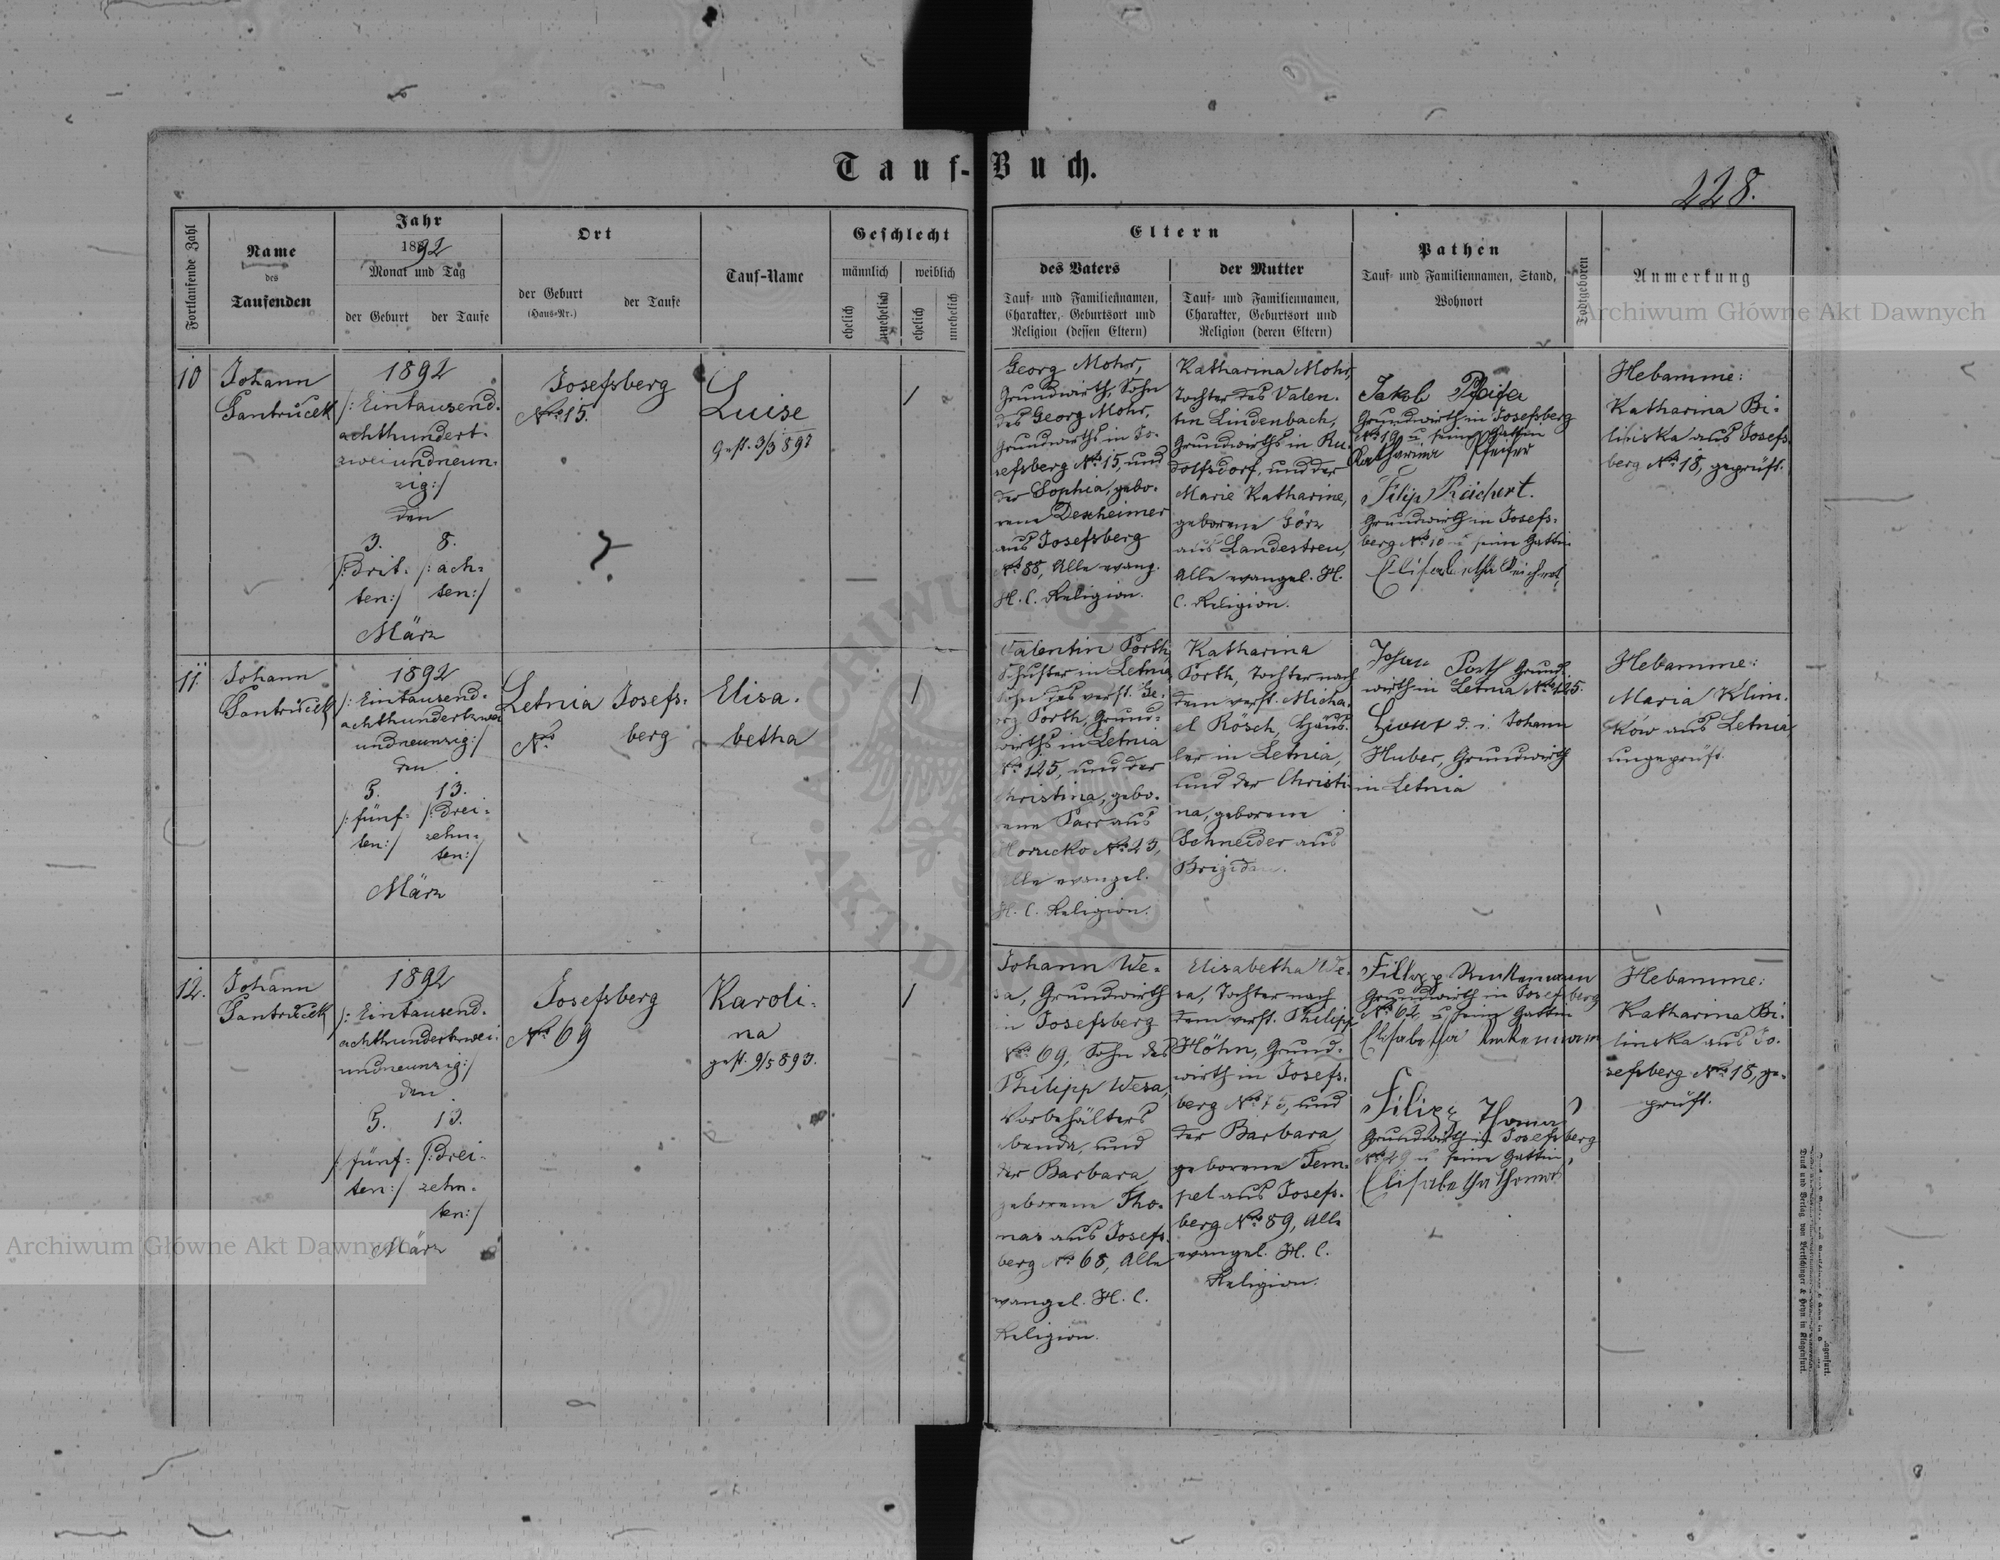 Tauf-Buch.
228.
Fortlaufende Zahl
Name
des
Taufenden
Jahr
1892
Monat und Tag
der Geburt
der Taufe
Ort
der Geburt
(Haus-Nr.)
der Taufe
Tauf-Name
Geschlecht
männlich
weiblich
ehelich
unehelich
ehelich
unehelich
Eltern
des Vaters
Tauf- und Familiennamen,
Charakter, Geburtsort und
Religion (dessen Eltern)
der Mutter
Tauf- und Familiennamen,
Charakter, Geburtsort und
Religion (deren Eltern)
Pathen
Tauf- und Familiennamen, Stand,
Wohnort
Todtgeboren
Anmerkung
10
Johann
Jantruček
1892
/: Eintausend-
achthundert-
zweiundneun-
zig :/
den
3. 8.
/: drit- /: ach-
ten :/ ten :/
März
Josefsberg
No 15.
L
Luise
Gest. 3/3 893
1
Georg Mohr,
Grundwirth, Sohn
des Georg Mohr,
Grundwirths in Jo-
sefsberg No 15, und
der Sophia, gebo-
rene Dexheimer
aus Josefsberg
No 88, Alle evang.
H. C. Religion.
Katharina Mohr,
Tochter des Valen-
tin Lindenbach,
Grundwirths in Ru-
dolfsdorf, und der
Marie Katharine,
geborene Görz
aus Landestreu,
Alle evangel. H.
C. Religion.
Jakob Pfeifer
Grundwirth in Josefsberg
No 19 u. seine Gattin
Katharina Pfeifer
Filip Reichert.
Grundwirth in Josefs-
berg No 10 u seine Gattin
Elisabetha Reichert
Hebamme:
Katharina Bi-
linska aus Josefs-
berg No 18, geprüft.
11.
Johann
Jantruček
1892
/: Eintausend-
achthundertzwei
undneunzig :/
den
5. 13.
/: fünf- /: drei-
ten :/ zehn-
ten :/
März
Letnia
No
Josefs-
berg
Elisa-
betha
1
Valentin Porth
Schuster in Letnia
Sohn des verst. Ge-
org Porth, Grund-
wirths in Letnia
No 125, und der
Christina, gebo-
rene Parr aus
No 23,
Alle evangel.
H. C. Religion.
Katharina
Porth, Tochter nach
dem verst. Micha-
el Rösch, Häus-
ler in Letnia,
und der Christi-
na, geborene
Schneider aus
Brigidau.
Johan Porth Grund-
wirth in Letnia No 125.
d. i. Johann
Huber, Grundwirth
in Letnia
Hebamme:
Maria Klim-
ków aus Letnia,
ungeprüft.
12.
Johann
Jantruček
1892
/: Eintausend-
achthundertzwei-
undneunzig :/
den
5. 13.
/: fünf- /: drei-
ten :/ zehn-
ten :/
März
Josefsberg
No 69
Karoli-
na
gest. 9/5 893.
1
Johann We-
sa, Grundwirth
in Josefsberg
No 69, Sohn des
Philipp Wesa,
Vorbehälters
ebenda, und
der Barbara,
geborene Tho-
mas aus Josefs-
berg No 68, Alle
evangel. H. C.
Religion.
Elisabetha We-
sa, Tochter nach
dem verst. Philipp
Höhn, Grund-
wirth in Josefs-
berg No 75, und
der Barbara,
geborene Tem-
pel aus Josefs-
berg No 89, Alle
evangel. H. C.
Religion.
Filipp Unkemann
Grundwirth in Josefsberg
No 62 u seine Gattin
Elisabetha Unkemann
Filipp Thomas
Grundwirth in Josefsberg
No 49 u seine Gattin
Elisabetha Thomas
Hebamme:
Katharina Bi-
linska aus Jo-
sefsberg No 18, ge-
prüft.
Druck und Verlag von Bertschinger & Heyn in Klagenfurt.
Archiwum Główne Akt Dawnych
Archiwum Główne Akt Dawnych